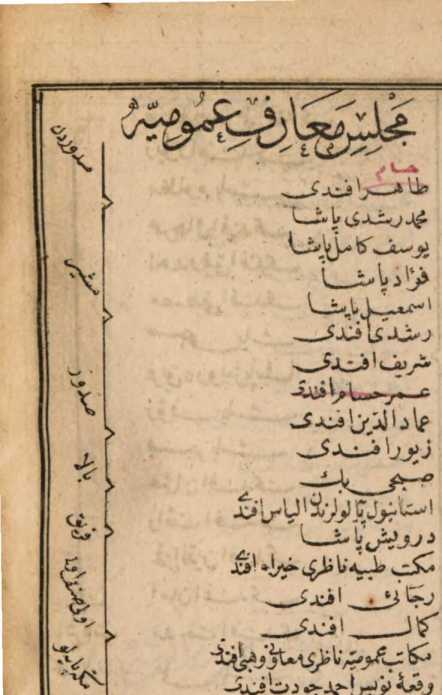 مجلس معارف عموميه
صدوردن
حسام
طاهر افندى
محمد رشدى پاشا
يوسف كامل پاشا
مشير
فؤاد پاشا
اسمعيل پاشا
رشدى افندى
شريف افندى
صدور
عمر حسام افندى
عماد الدين افندى
زيور افندى
بالا
صبحى بك
استانبول پايه‌لولرندن الياس افندى
فريق
درويش پاشا
مكتب طبيه ناظرى خيرالله افندى
اولى صنف اولى
رجائى افندى
كمال افندى
مكاتب عموميه ناظرى معاونى وهبى افندى
وقعه نويس احمد جودت افندى